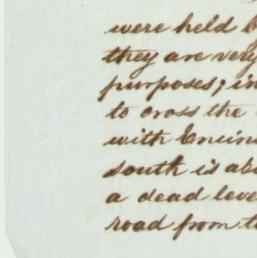 were held
they are very
purposes; in
to cross the
with Encin
south is ab
a dead leve
road from t